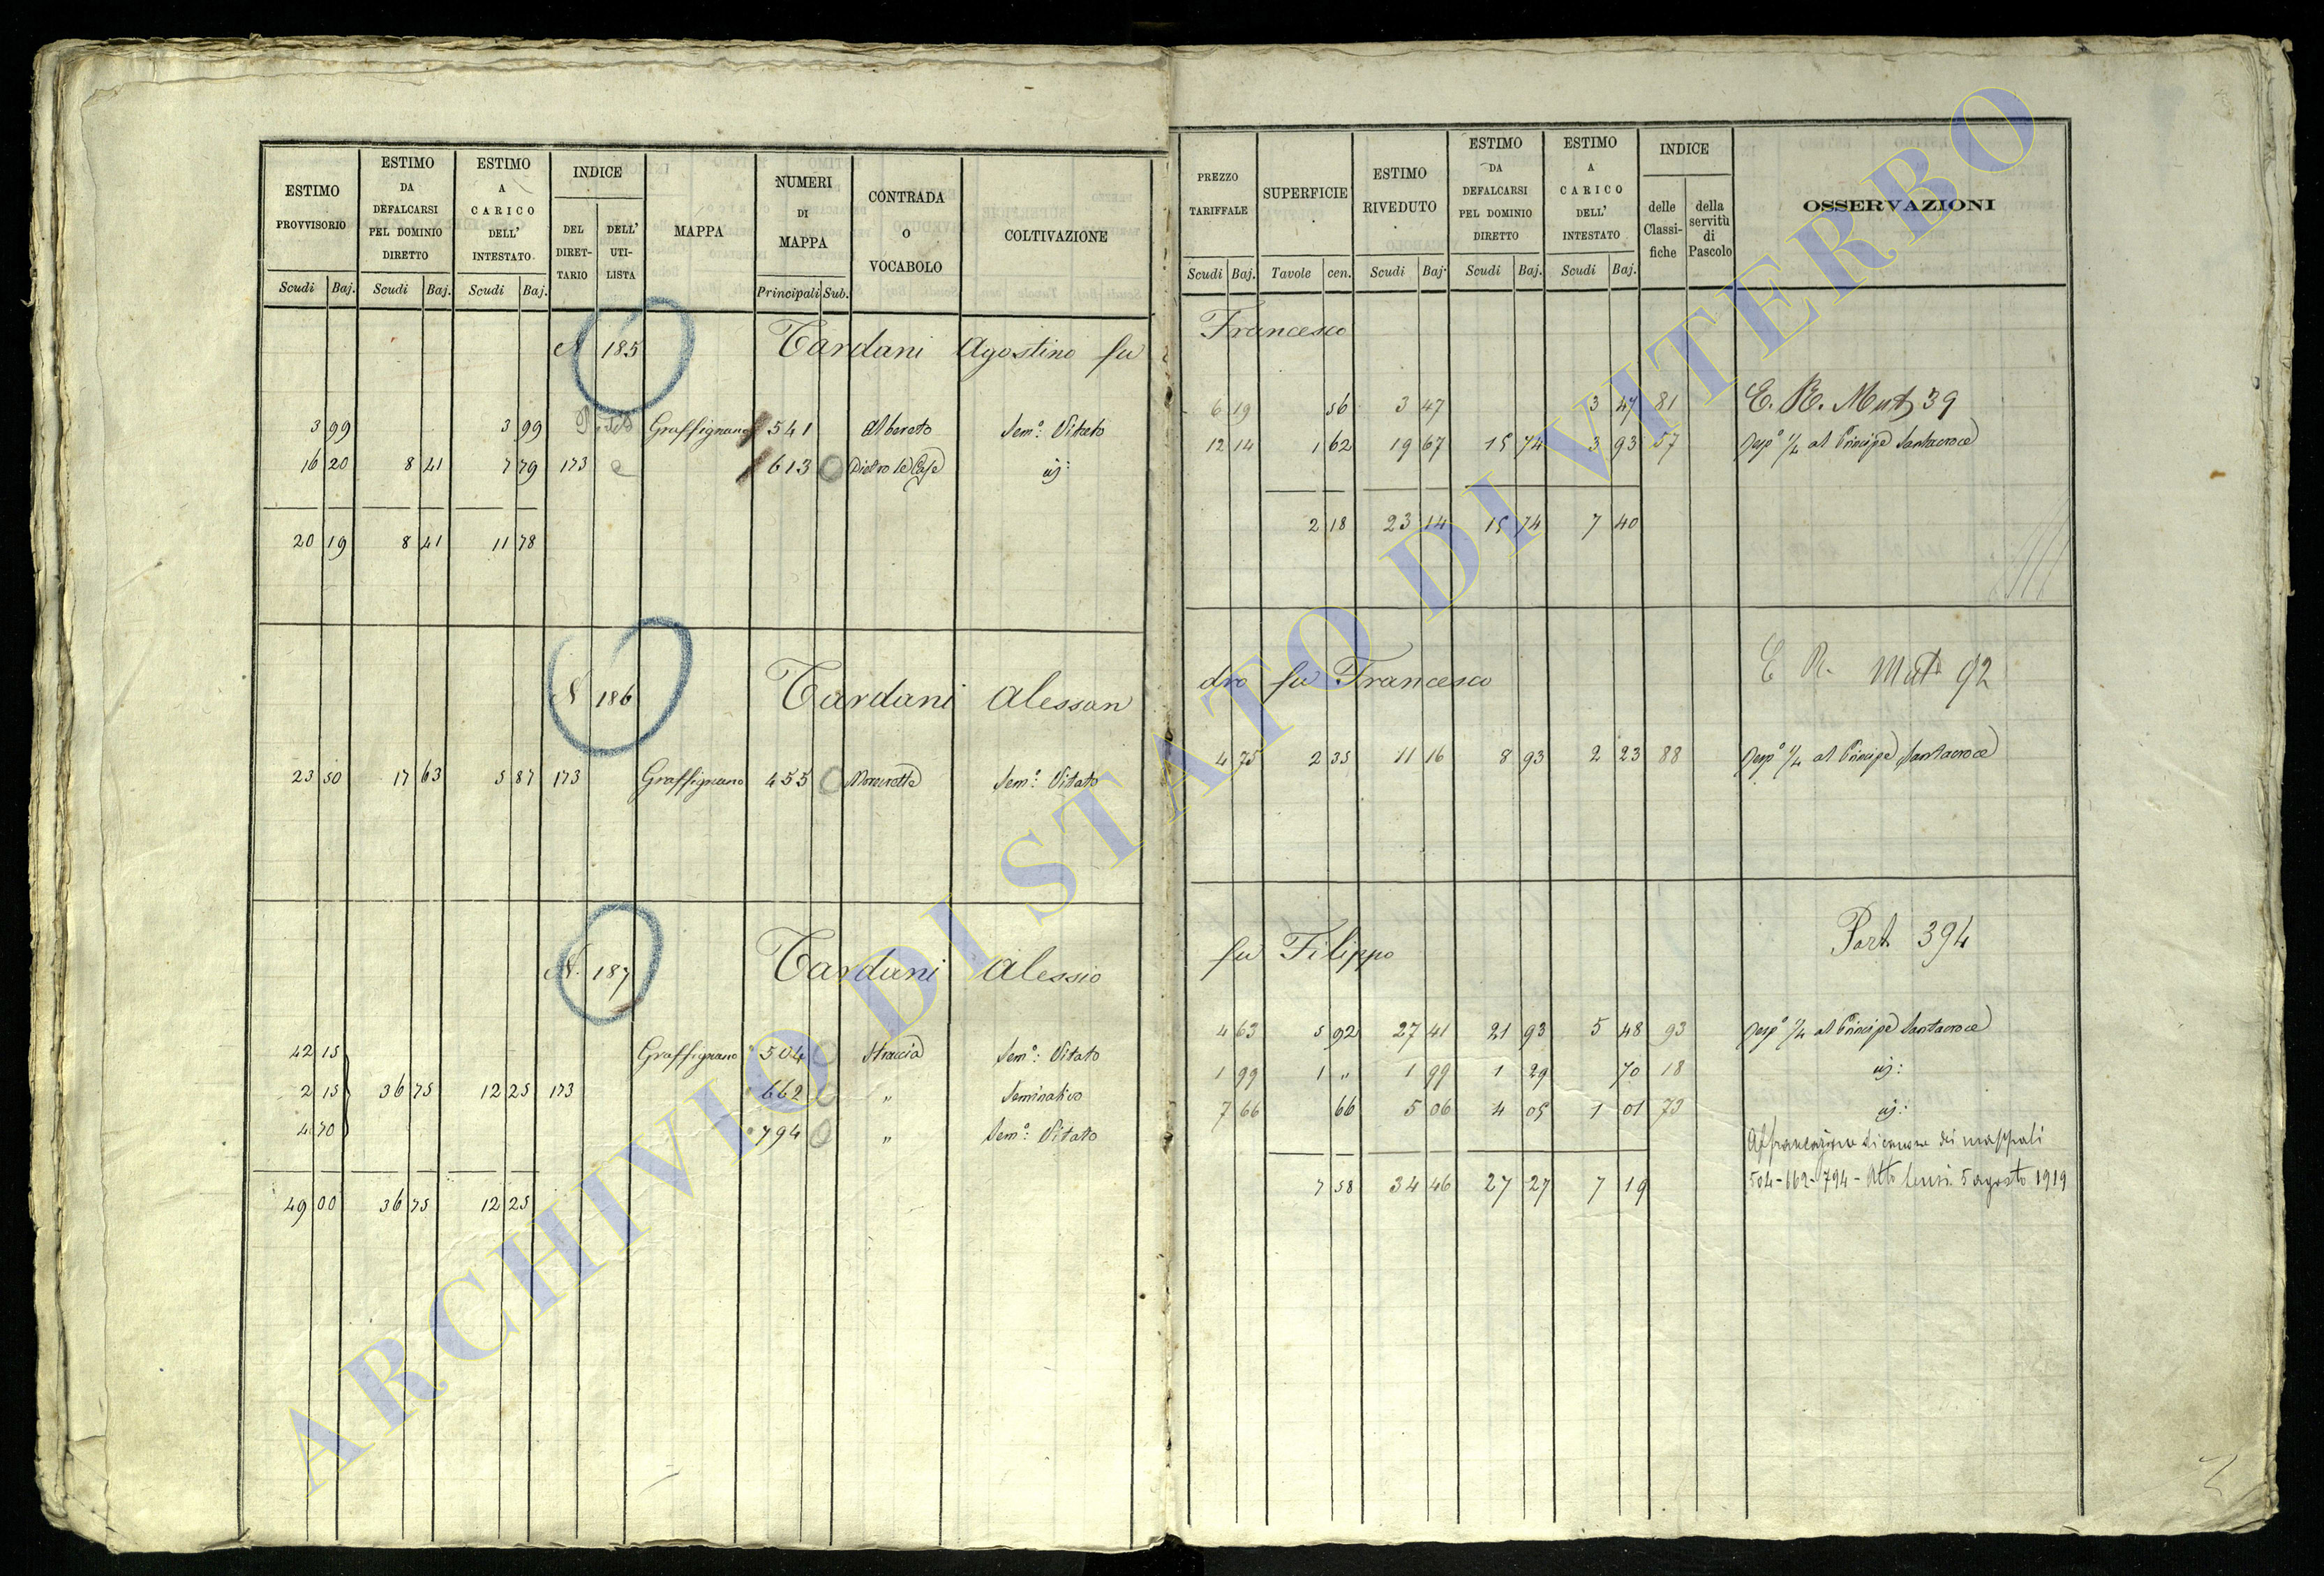 ESTIMO PROVVISORIO | ESTIMO DA DEFALCARSI PEL DOMINIO DIRETTO | ESTIMO A CARICO DELL' INTESTATO | INDICE | MAPPA | NUMERI DI MAPPA | CONTRADA O VOCABOLO | COLTIVAZIONE | PREZZO TARIFFALE | SUPERFICIE | ESTIMO RIVEDUTO | ESTIMO DA DEFALCARSI PEL DOMINIO DIRETTO | ESTIMO A CARICO DELL' INTESTATO | INDICE | OSSERVAZIONI
DEL DIRETTARIO | DELL' UTILISTA | delle Classifiche | della servitù di Pascolo
Scudi Baj. | Scudi Baj. | Scudi Baj. | Principali Sub. | Scudi Baj. | Tavole cen. | Scudi Baj. | Scudi Baj. | Scudi Baj.
N 185 Tardani Agostino fu Francesco
3 99 | 3 99 | Graffignano 541 Albereto Sem.º Vitato | 6 19 | 56 | 3 47 | 3 47 | 81 | E. R. Mat 39
16 20 | 8 41 | 7 79 | 173 | 613 | 12 14 | 1 62 | 19 67 | 15 74 | 3 93 | 57 | al Principe Santacroce
20 19 | 8 41 | 11 78 | 2 18 | 23 14 | 15 74 | 7 40
N 186 Tardani Alessandro fu Francesco E R. Mat 92
23 50 | 17 63 | 5 87 | 173 | Graffignano 455 Sem.º Vitato | 4 75 | 2 35 | 11 16 | 8 93 | 2 23 | 88 | al Principe Santacroce
N. 187 Tardani Alessio fu Filippo Part 394
42 15 | Graffignano 504 Straccia Sem.º Vitato | 4 63 | 5 92 | 27 41 | 21 93 | 5 48 | 93 | al Principe Santacroce
2 15 | 36 75 | 12 25 | 173 | 662 " Seminativo | 1 99 | 1 " | 1 99 | 1 29 | 70 | 18
4 70 | 794 " Sem.º Vitato | 7 66 | 66 | 5 06 | 4 05 | 1 01 | 73
Affrancazione di canone dei mappali
504-662-794 - Atto 5 agosto 1919
49 00 | 36 75 | 12 25 | 7 58 | 34 46 | 27 27 | 7 19
ARCHIVIO DI STATO DI VITERBO